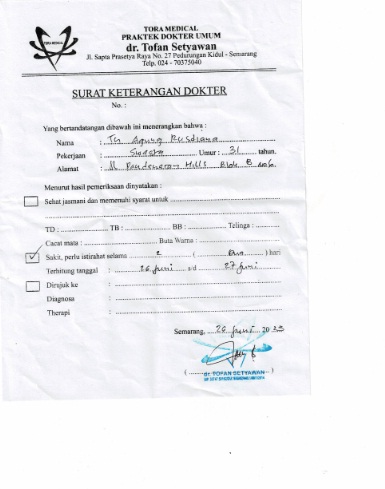 TORA MEDICAL
PRAKTEK DOKTER UMUM
dr. Tofan Setyawan
Jl. Sapta Prasetya Raya No. 27 Pedurungan Kidul - Semarang
Telp. 024 - 70375040
TORA MEDICAL
SURAT KETERANGAN DOKTER
No. :
Yang bertandatangan dibawah ini menerangkan bahwa :
Nama : Tn Agung Rusdiana
Pekerjaan : Swasta Umur : 31 tahun.
Alamat : Jl Hills Blok B
Menurut hasil pemeriksaan dinyatakan :
Sehat jasmani dan memenuhi syarat untuk
TD : TB : BB : Telinga :
Cacat mata : Buta Warna :
Sakit, perlu istirahat selama 2 ( Dua ) hari
Terhitung tanggal : 26 Juni s/d 27 Juni
Dirujuk ke :
Diagnosa :
Therapi :
Semarang, 26 Juni 2023
( dr. TOFAN SETYAWAN )